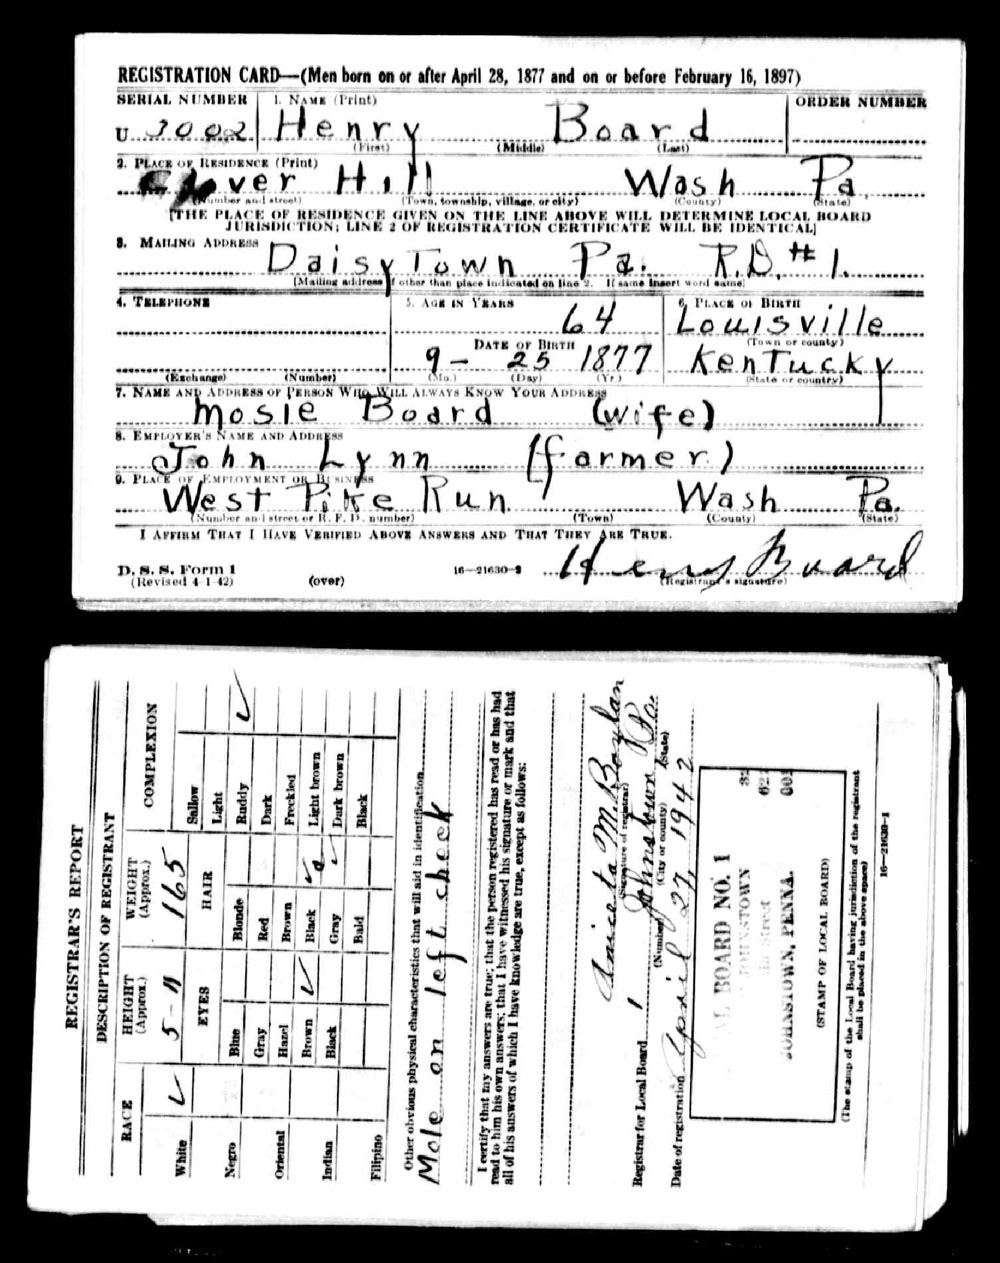 REGISTRATION CARD—(Men born on or after April 28, 1877 and on or before February 16, 1897)
SERIAL NUMBER 1. NAME (Print) ORDER NUMBER
U 3002 Henry Board
(First) (Middle) (Last)
2. PLACE OF RESIDENCE (Print)
Clover Hill Wash Pa
(Number and street) (Town, township, village, or city) (County) (State)
[THE PLACE OF RESIDENCE GIVEN ON THE LINE ABOVE WILL DETERMINE LOCAL BOARD
JURISDICTION; LINE 2 OF REGISTRATION CERTIFICATE WILL BE IDENTICAL]
3. MAILING ADDRESS
DaisyTown Pa. R.D. #1.
[Mailing address if other than place indicated on line 2. If same insert word same]
4. TELEPHONE 5. AGE IN YEARS 6. PLACE OF BIRTH
64 Louisville
DATE OF BIRTH (Town or county)
9- 25 1877 Kentucky
(Exchange) (Number) (Mo.) (Day) (Yr.) (State or country)
7. NAME AND ADDRESS OF PERSON WHO WILL ALWAYS KNOW YOUR ADDRESS
Mosie Board (wife)
8. EMPLOYER'S NAME AND ADDRESS
John Lynn (farmer)
9. PLACE OF EMPLOYMENT OR BUSINESS
West Pike Run Wash Pa.
(Number and street or R. F. D. number) (Town) (County) (State)
I AFFIRM THAT I HAVE VERIFIED ABOVE ANSWERS AND THAT THEY ARE TRUE.
D. S. S. Form 1
(Revised 4-1-42) (over) 16—21630-2 Henry Board
(Registrant's signature)
REGISTRAR'S REPORT
DESCRIPTION OF REGISTRANT
RACE HEIGHT (Approx.) WEIGHT (Approx.) COMPLEXION
White ✓ 5-11 165 Sallow
EYES HAIR Light
Negro Blue Blonde Ruddy ✓
Gray Red Dark
Oriental Hazel Brown Freckled
Indian Brown ✓ Black Light brown
Black Gray ✓ Dark brown
Filipino Bald Black
Other obvious physical characteristics that will aid in identification
Mole on left cheek
I certify that my answers are true; that the person registered has read or has had
read to him his own answers; that I have witnessed his signature or mark and that
all of his answers of which I have knowledge are true, except as follows:
Aniceta M Boylan
(Signature of registrar)
Registrar for Local Board 1 Johnstown Pa.
(Number) (City or county) (State)
Date of registration April 27, 1942
AL BOARD NO. 1 32
JOHNSTOWN 62
Street 001
JOHNSTOWN, PENNA.
(STAMP OF LOCAL BOARD)
(The stamp of the Local Board having jurisdiction of the registrant
shall be placed in the above space)
16—21630-1